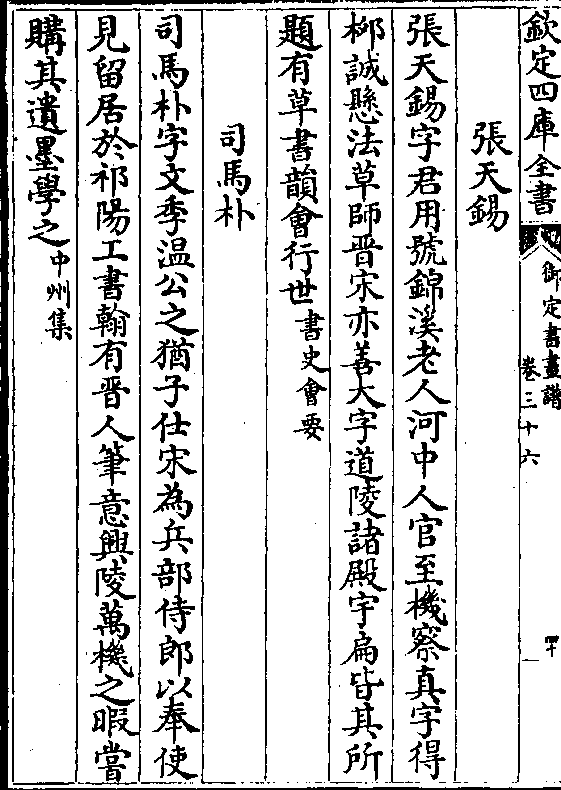 欽定四庫全書
御定書畫譜
卷三十六
張天錫
張天錫字君用號錦溪老人河中人官至機察真字得
柳誠懸法草師晋宋亦善大字道陵諸殿宇扁皆其所
題有草書韻會行世書史會要
司馬朴
司馬朴字文季温公之猶子仕宋為兵部侍郎以奉使
見留居於祁陽工書翰有晋人筆意興陵萬機之暇嘗
購其遺墨學之中州集